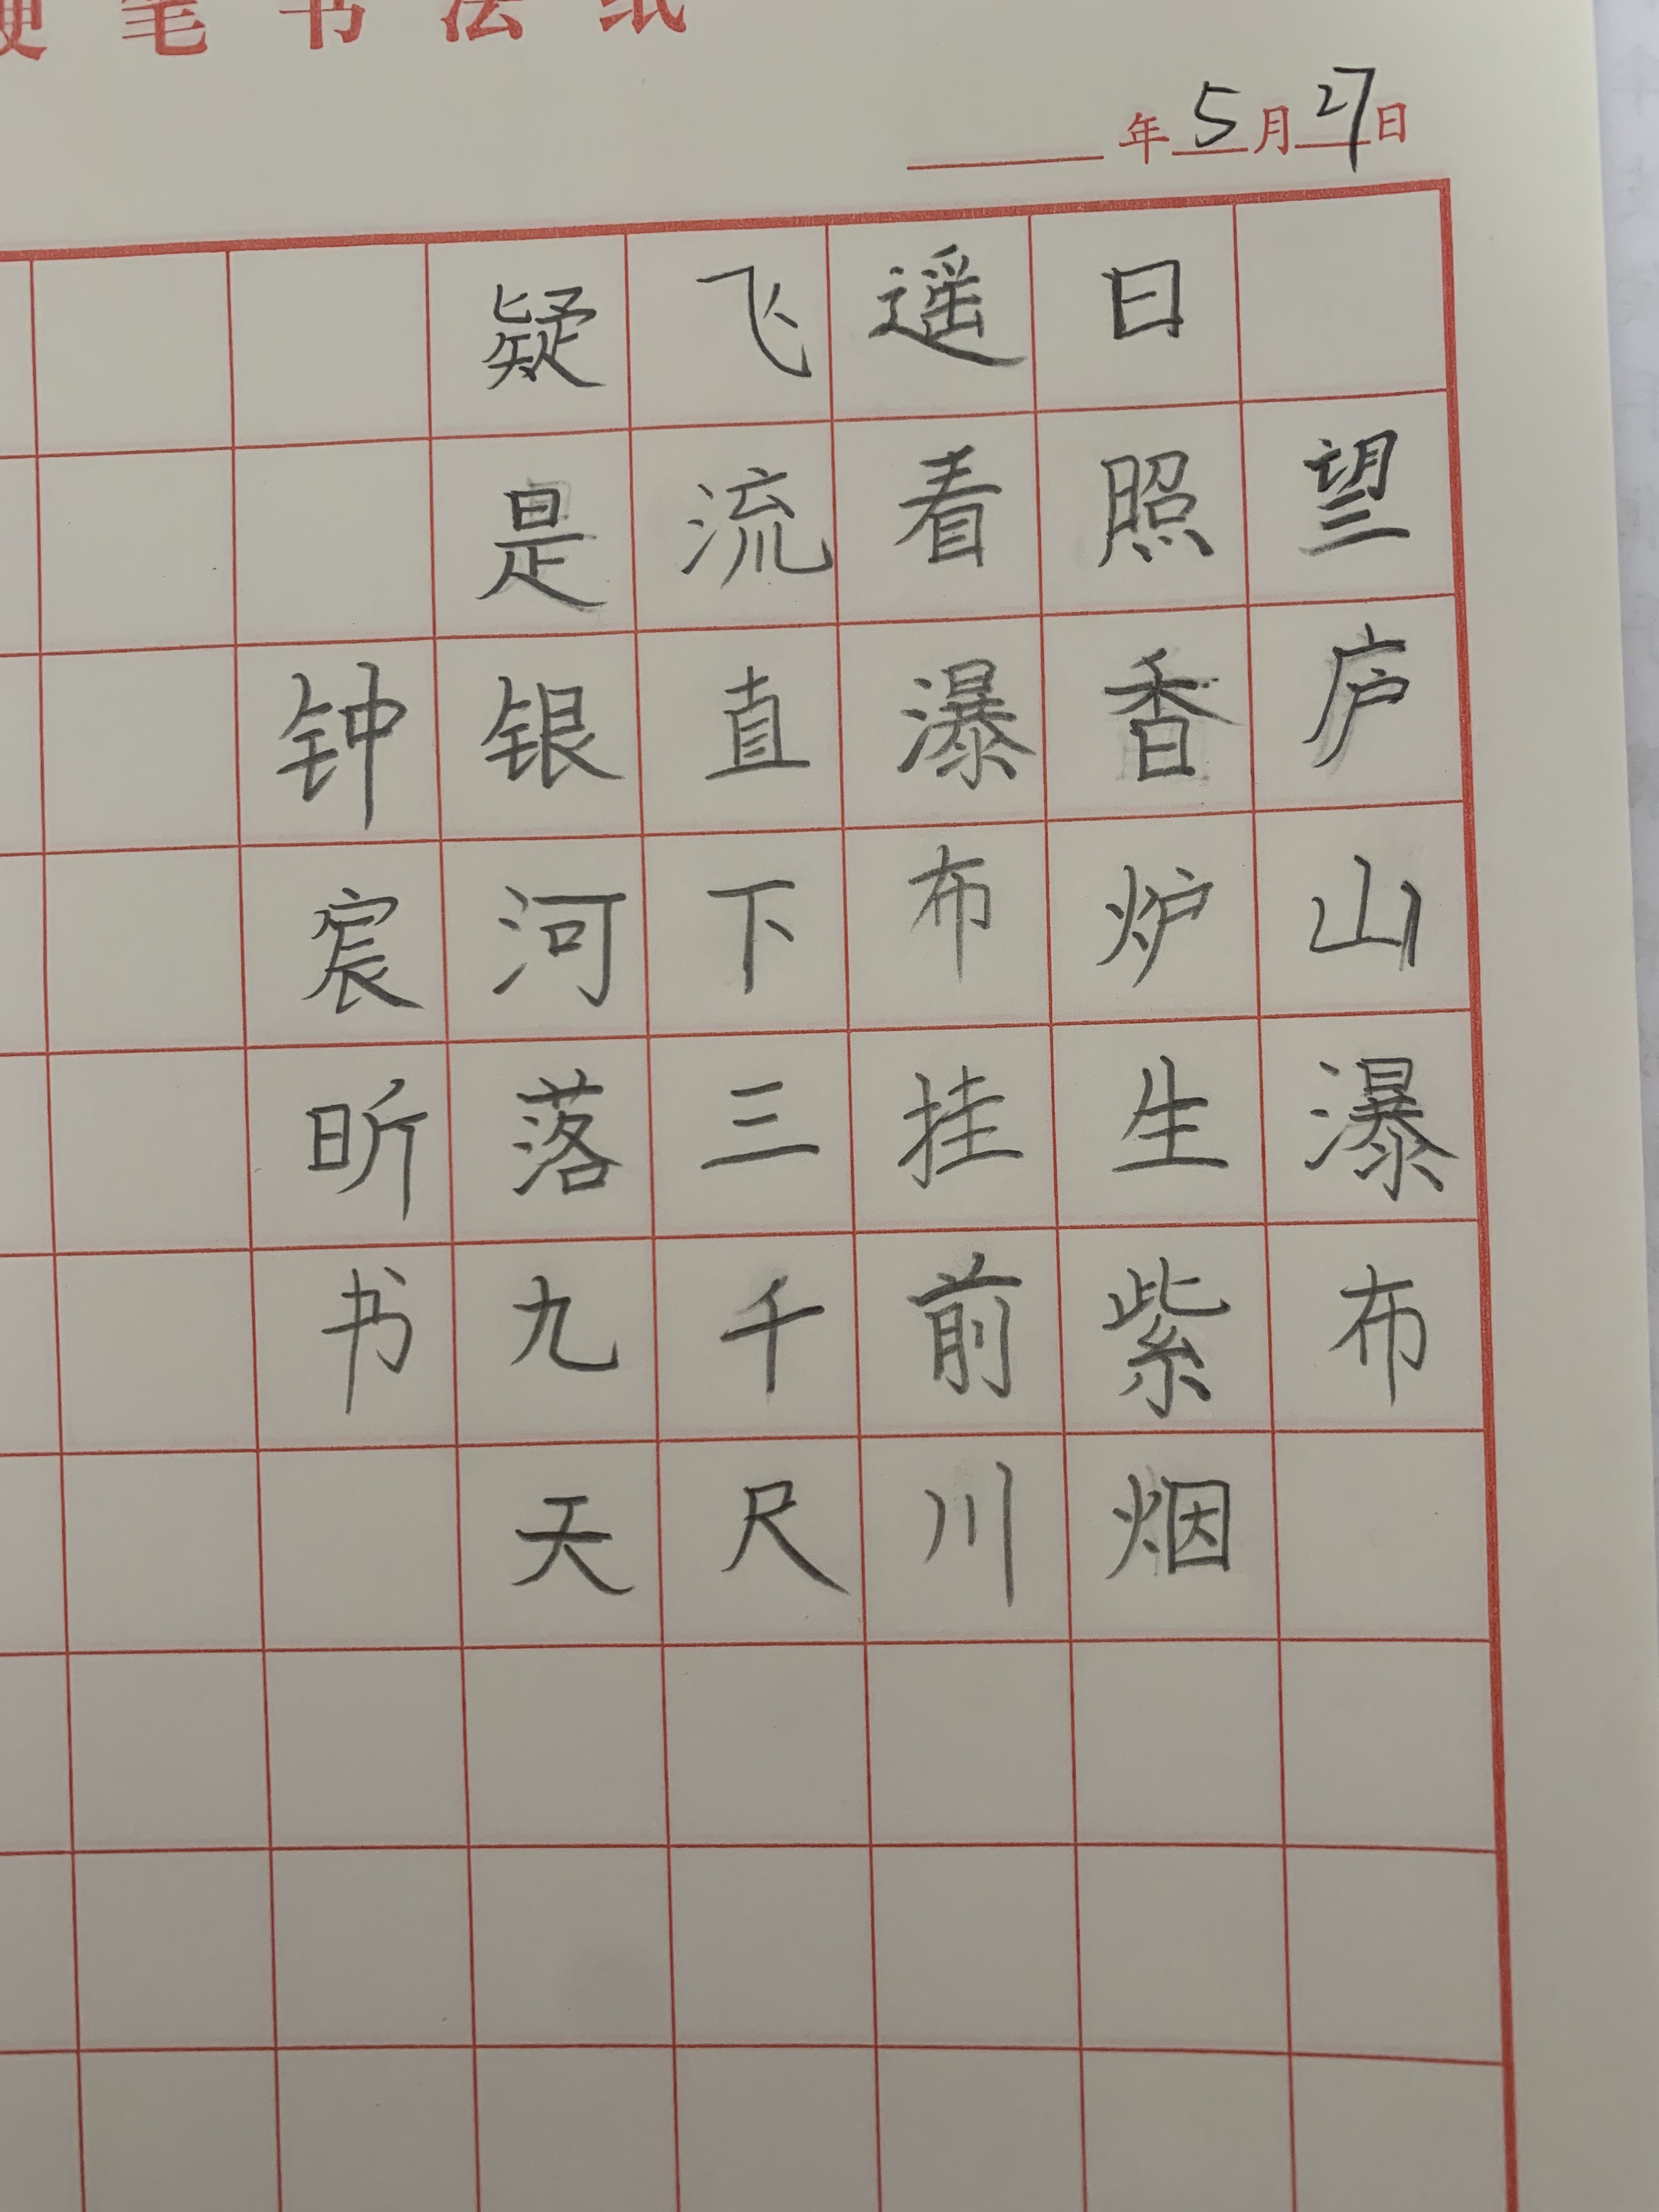 硬笔书法纸
年5月27日
望庐山瀑布
日照香炉生紫烟
遥看瀑布挂前川
飞流直下三千尺
疑是银河落九天
钟宸昕书